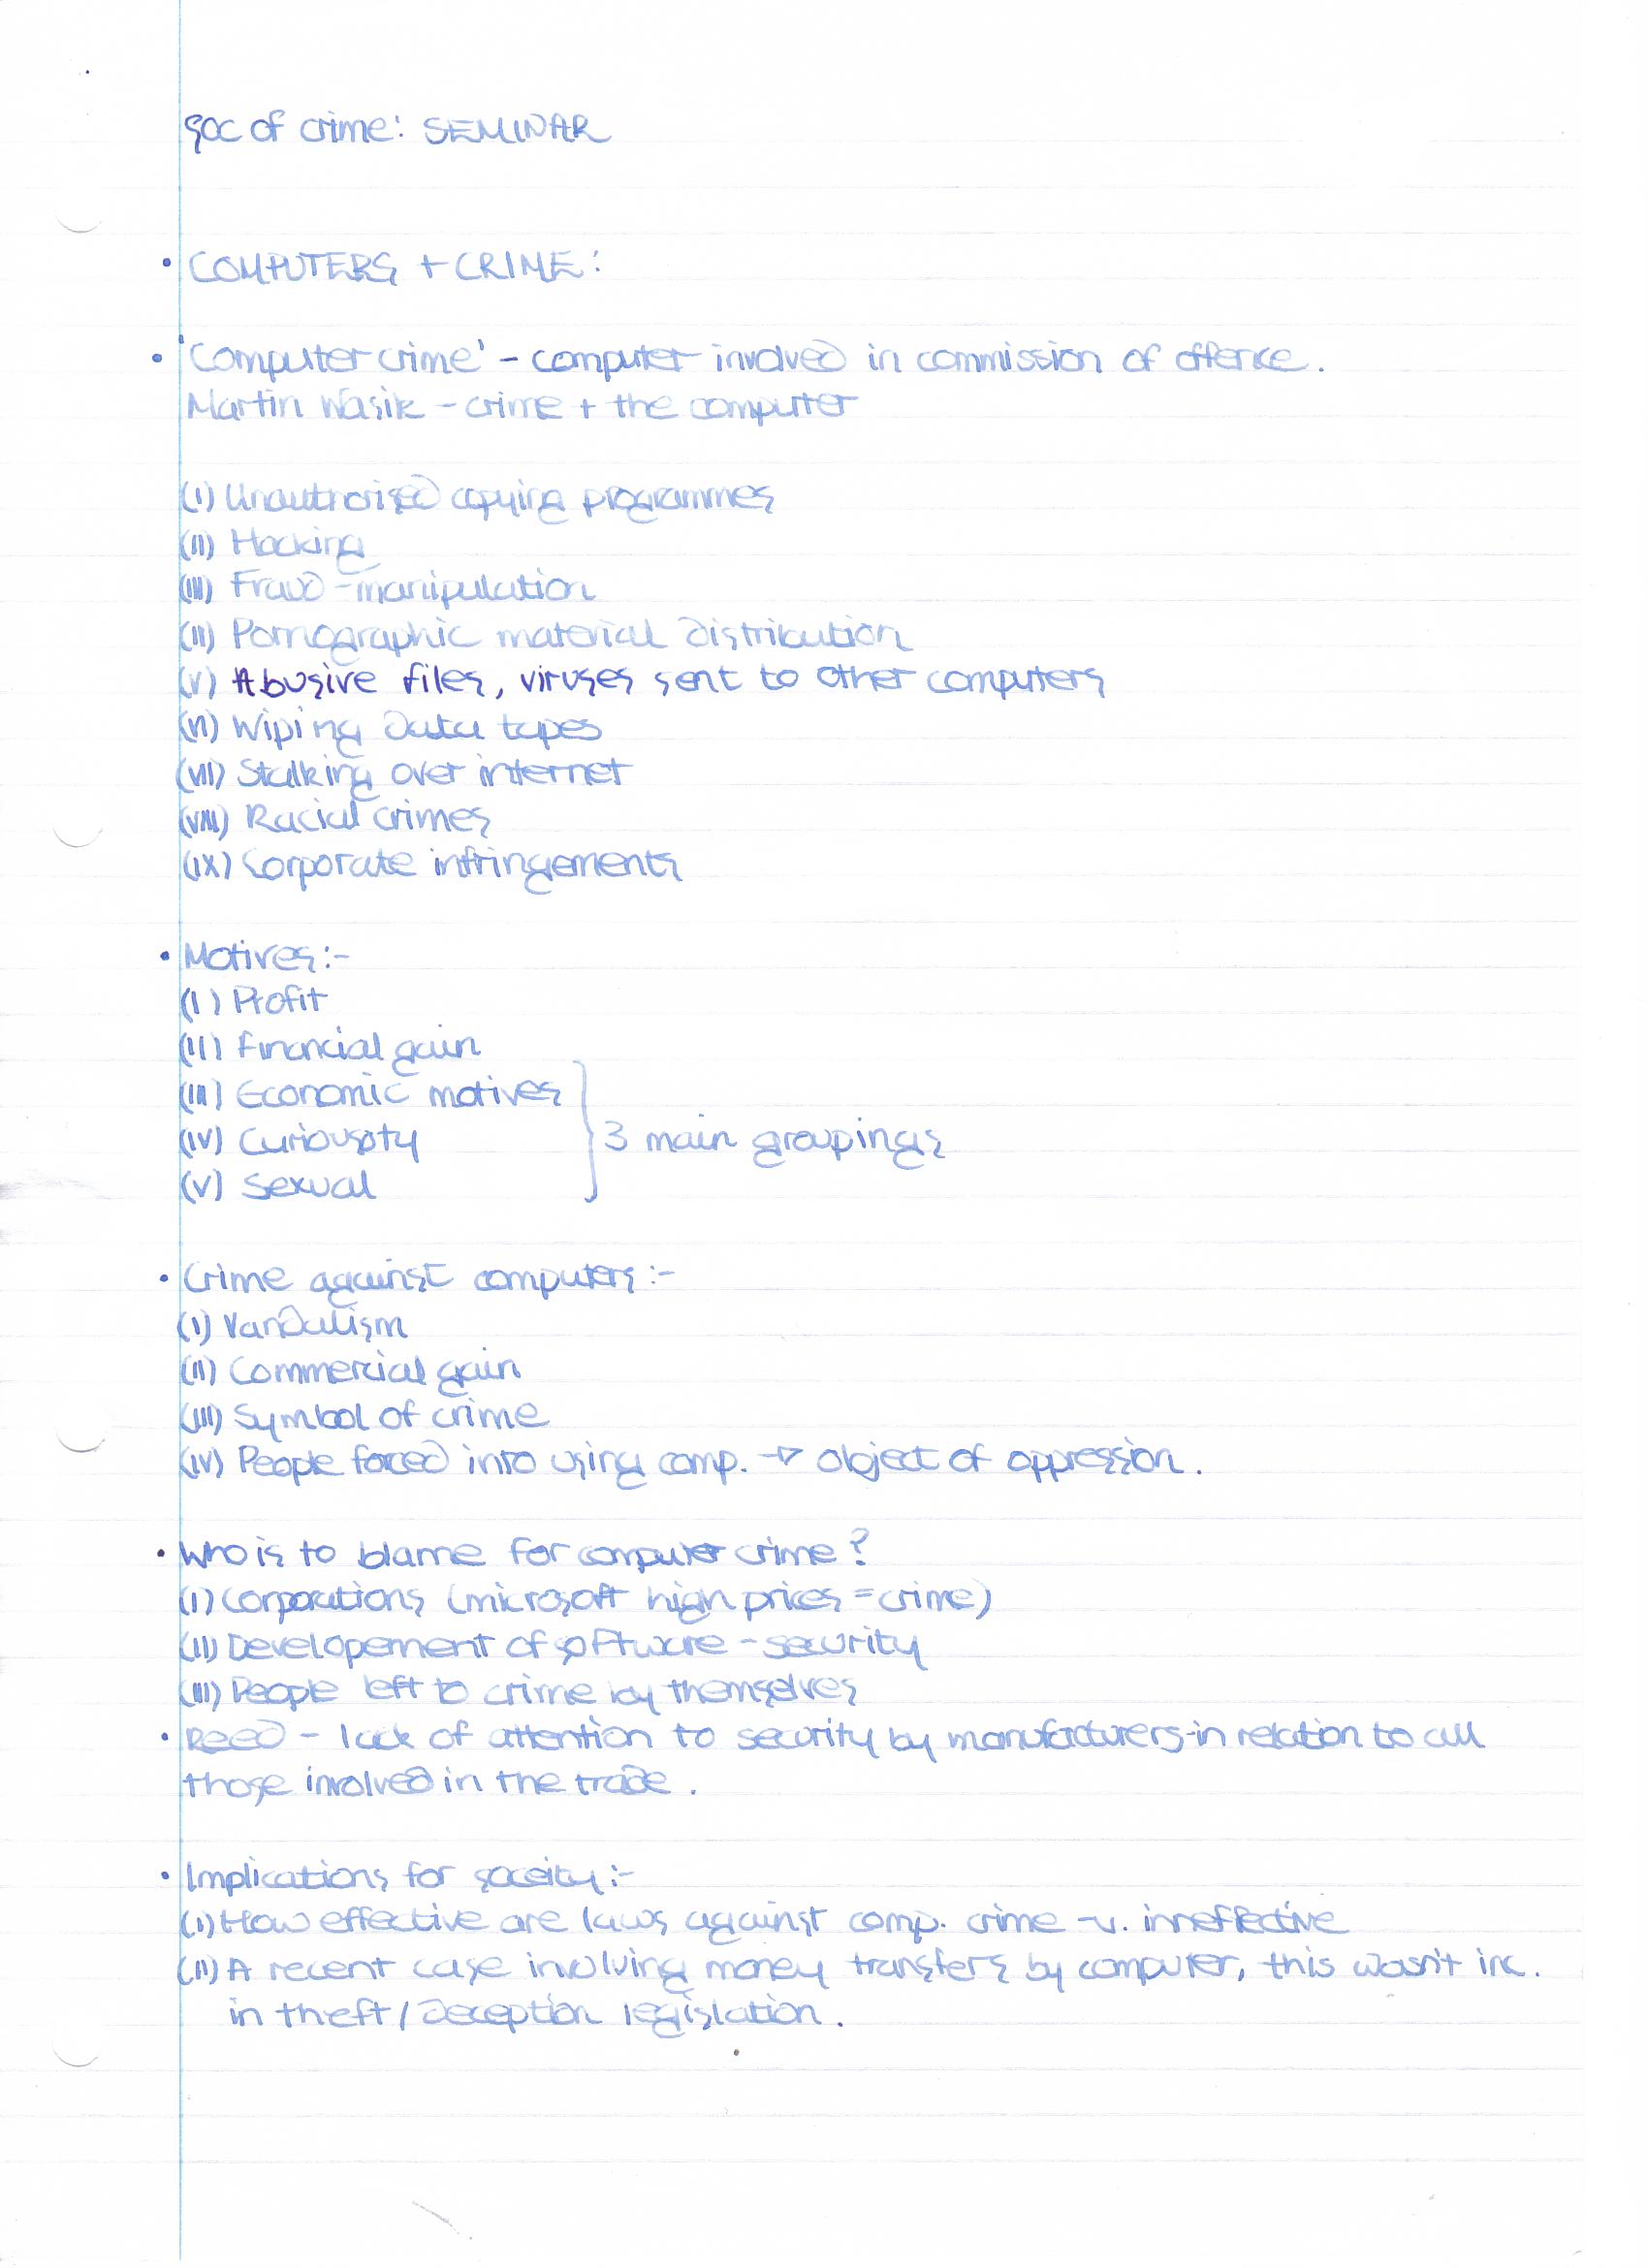 Soc of crime: SEMINAR
• COMPUTERS + CRIME:
• 'Computer crime' - computer involved in commission of offence.
Martin Wasik - crime + the computer
(I) Unauthorised copying programmes
(II) Hacking
(III) Fraud - manipulation
(II) Pornographic material distribution
(V) Abusive files, viruses sent to other computers
(VI) Wiping data tapes
(VII) Stalking over internet
(VIII) Racial crimes
(IX) Corporate infringements
• Motives:-
(I) Profit
(II) Financial gain
(III) Economic motives
(IV) Curiousoty
3 main groupings
(V) Sexual
• Crime against computers:-
(I) Vandalism
(II) Commercial gain
(III) Symbol of crime
(IV) People forced into using comp. → object of oppression.
• Who is to blame for computer crime?
(I) Corporations (microsoft high prices = crime)
(II) Developement of software - security
(III) People left to crime by themselves
• Reed - lack of attention to security by manufacturers-in relation to all
those involved in the trade.
• Implications for soceity:-
(I) How effective are laws against comp. crime - v. inneffective
(II) A recent case involving money transfers by computer, this wasn't inc.
in theft / deception legislation.